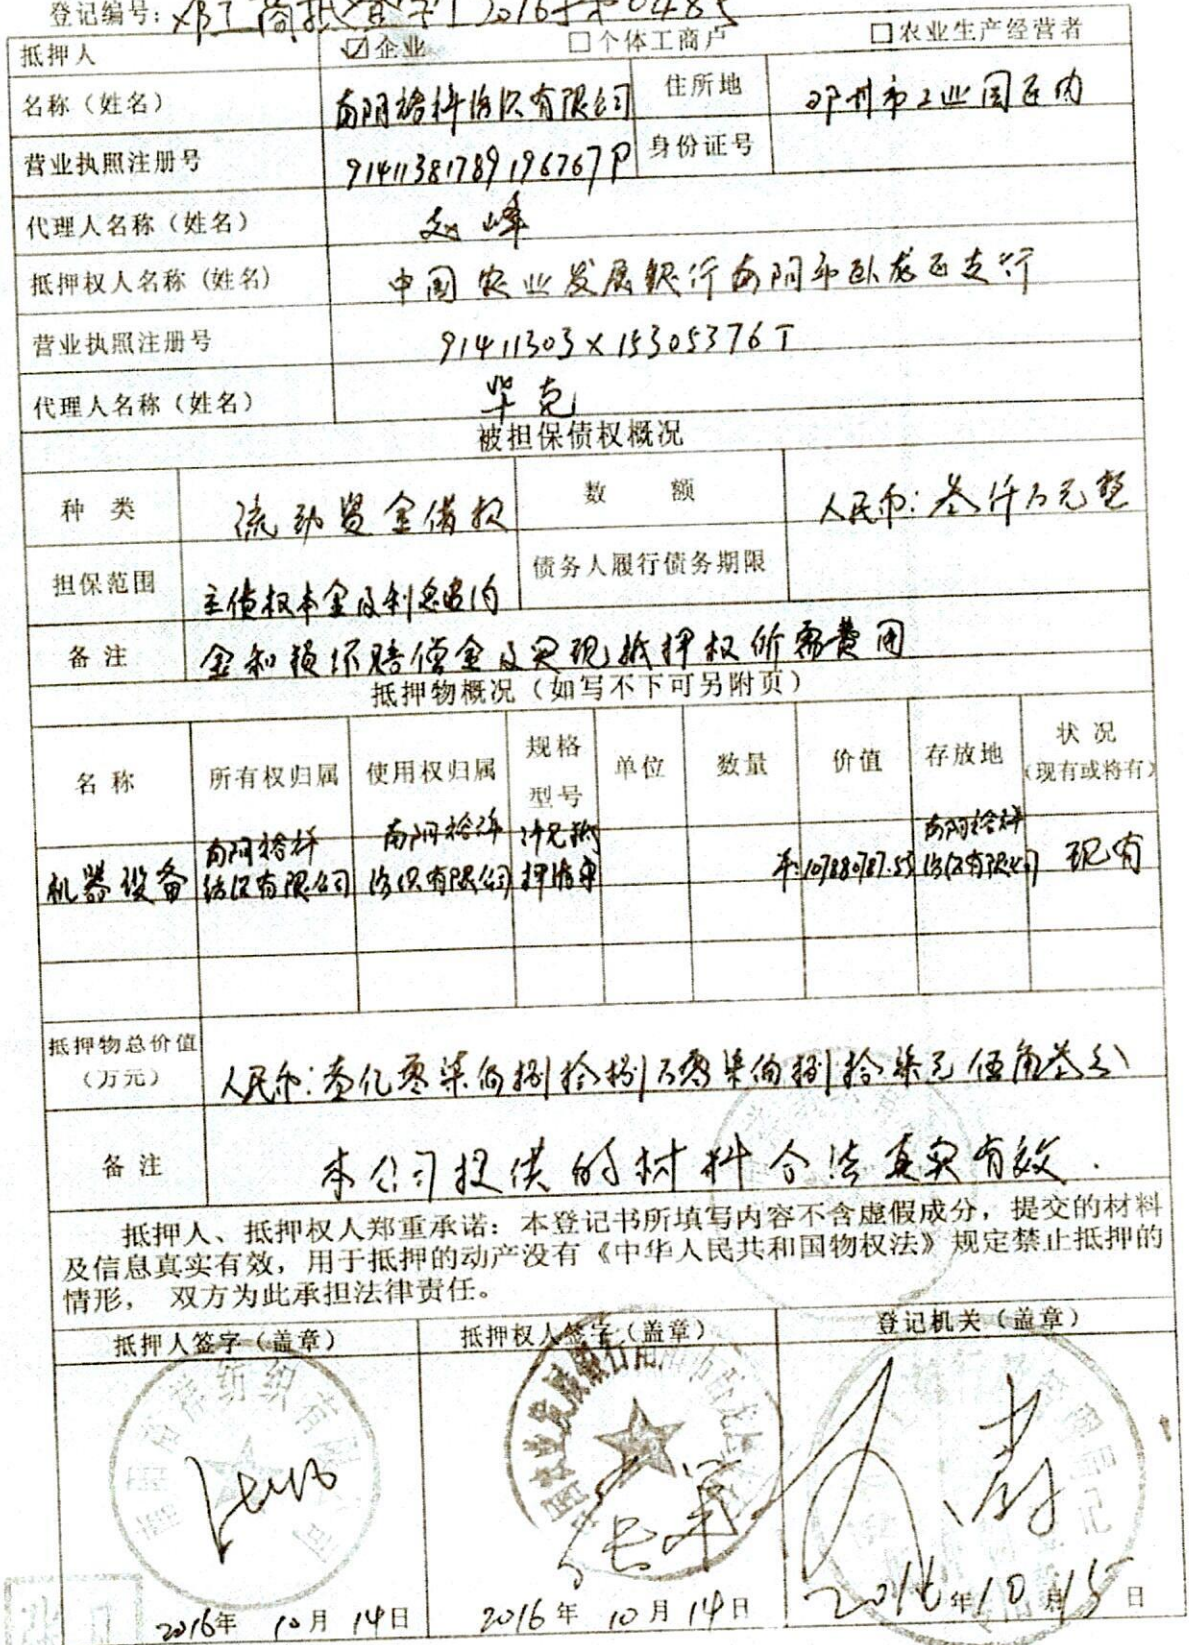 登记编号: 邓工商抵登字[2016]第0485
抵押人 ☑企业 □个体工商户 □农业生产经营者
名称（姓名） 南阳裕祥纺织有限公司 住所地 邓州市工业园区内
营业执照注册号 91411381789196767P 身份证号
代理人名称（姓名） 赵峰
抵押权人名称（姓名） 中国农业发展银行南阳市卧龙区支行
营业执照注册号 91411303X15305376T
代理人名称（姓名） 华克
被担保债权概况
种 类 流动资金借款 数 额 人民币: 叁仟万元整
担保范围 主债权本金及利息 债务人履行债务期限
备 注 金和损坏赔偿金及实现抵押权所需费用
抵押物概况（如写不下可另附页）
名 称 所有权归属 使用权归属 规格型号 单位 数量 价值 存放地 状 况（现有或将有）
机器设备 南阳裕祥纺织有限公司 南阳裕祥纺织有限公司 详见抵押清单 107880787.53 南阳裕祥纺织有限公司 现有
抵押物总价值（万元） 人民币: 壹亿零柒佰捌拾捌万零柒佰捌拾柒元伍角叁分
备 注 本公司提供的材料合法真实有效.
抵押人、抵押权人郑重承诺：本登记书所填写内容不含虚假成分，提交的材料
及信息真实有效，用于抵押的动产没有《中华人民共和国物权法》规定禁止抵押的
情形， 双方为此承担法律责任。
抵押人签字（盖章） 抵押权人签字（盖章） 登记机关（盖章）
2016年 10月 14日 2016年 10月 14日 2016年10月15日